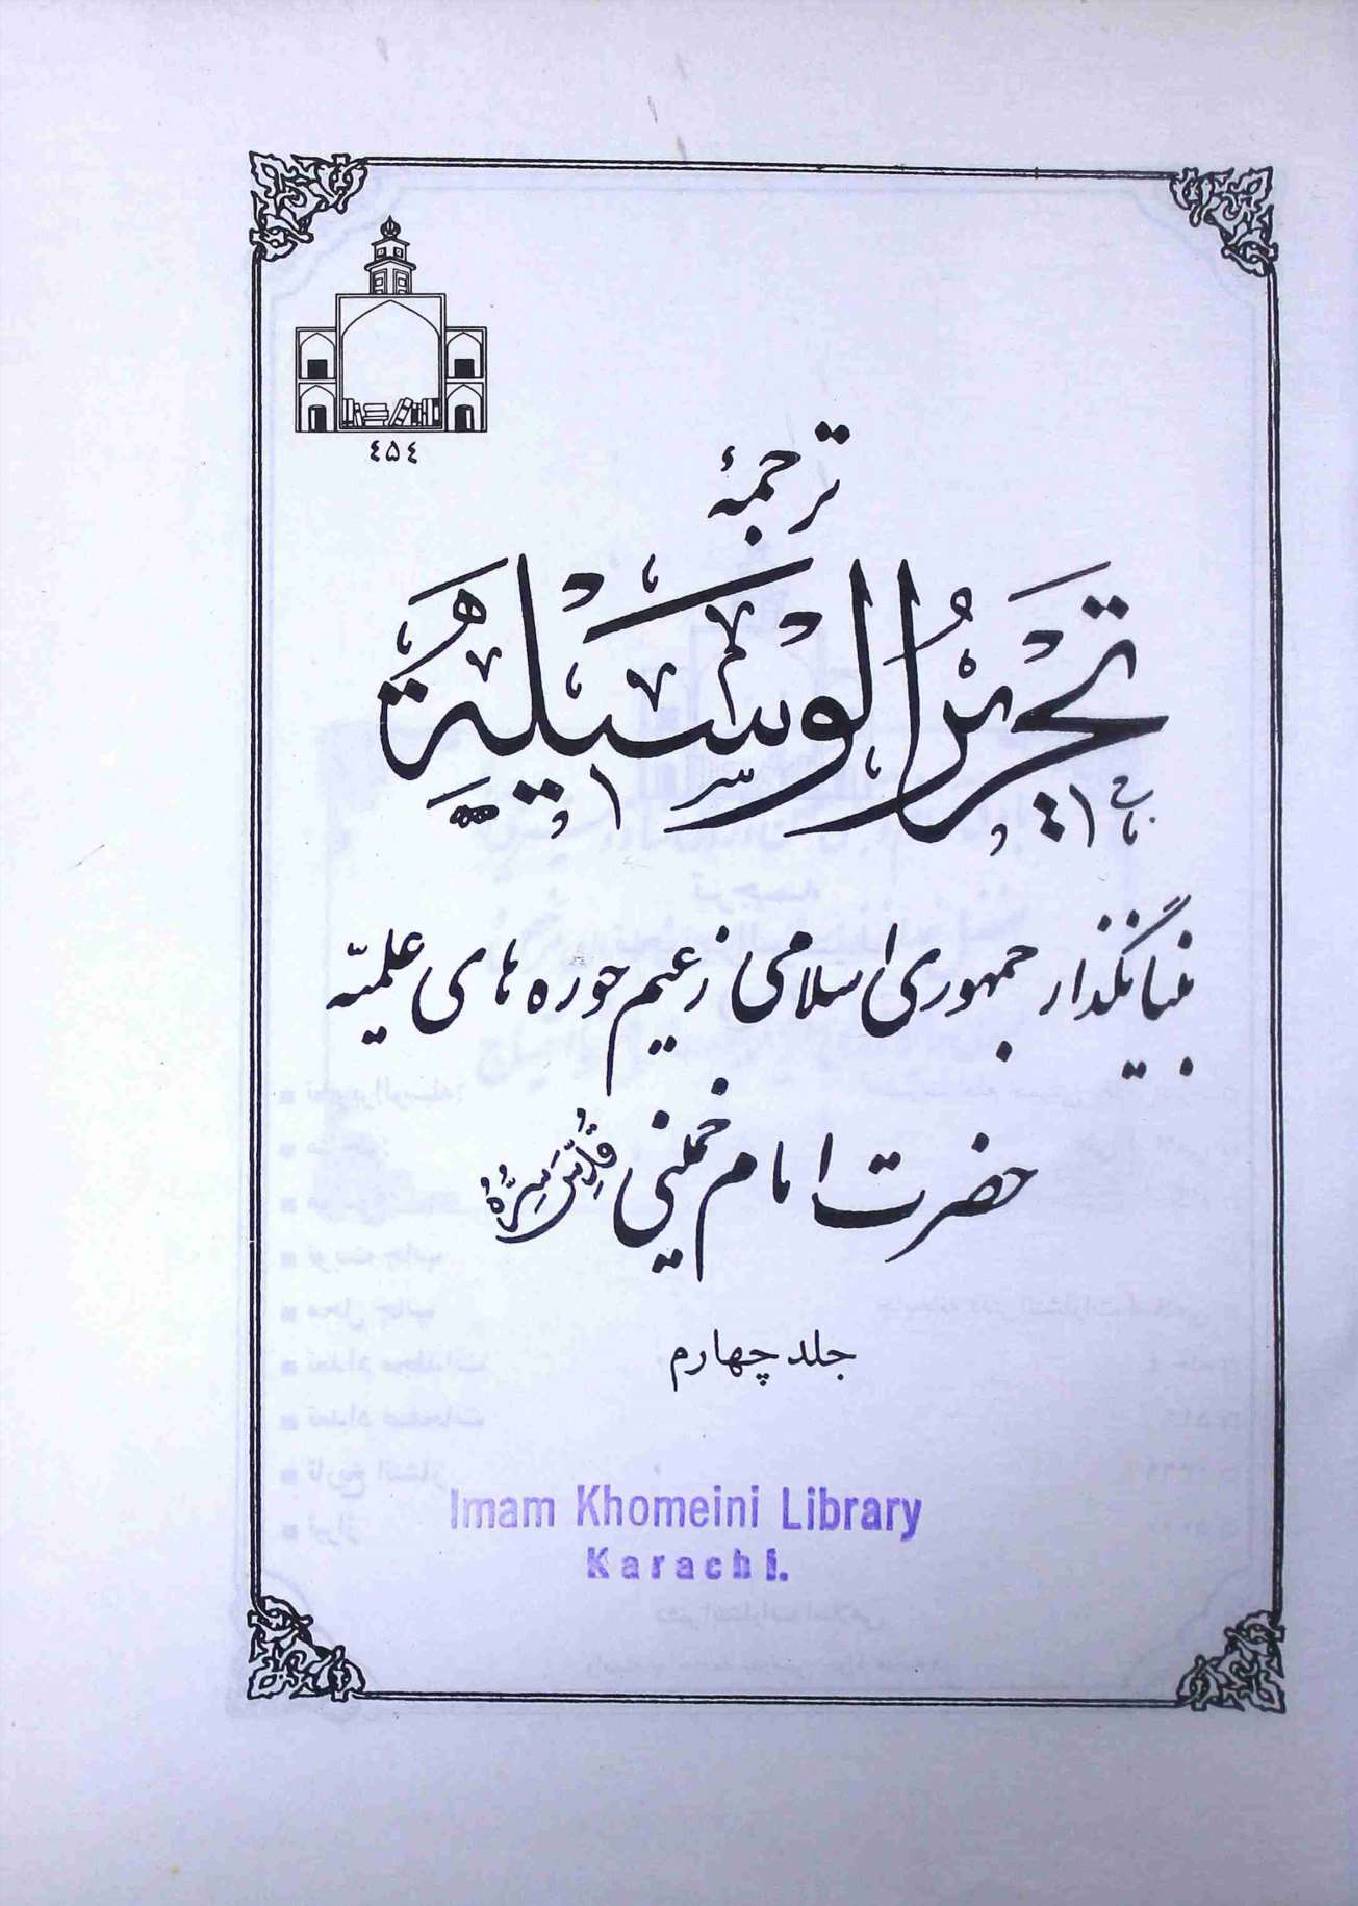 ٤٥٤
ترجمۀ
تحریر الوسیلة
بنیانگذار جمهوری اسلامی زعیم حوزه های علمیّه
حضرت امام خمینی قُدِّسَ سِرُّهُ
جلد چهارم
Imam Khomeini Library
Karachi.